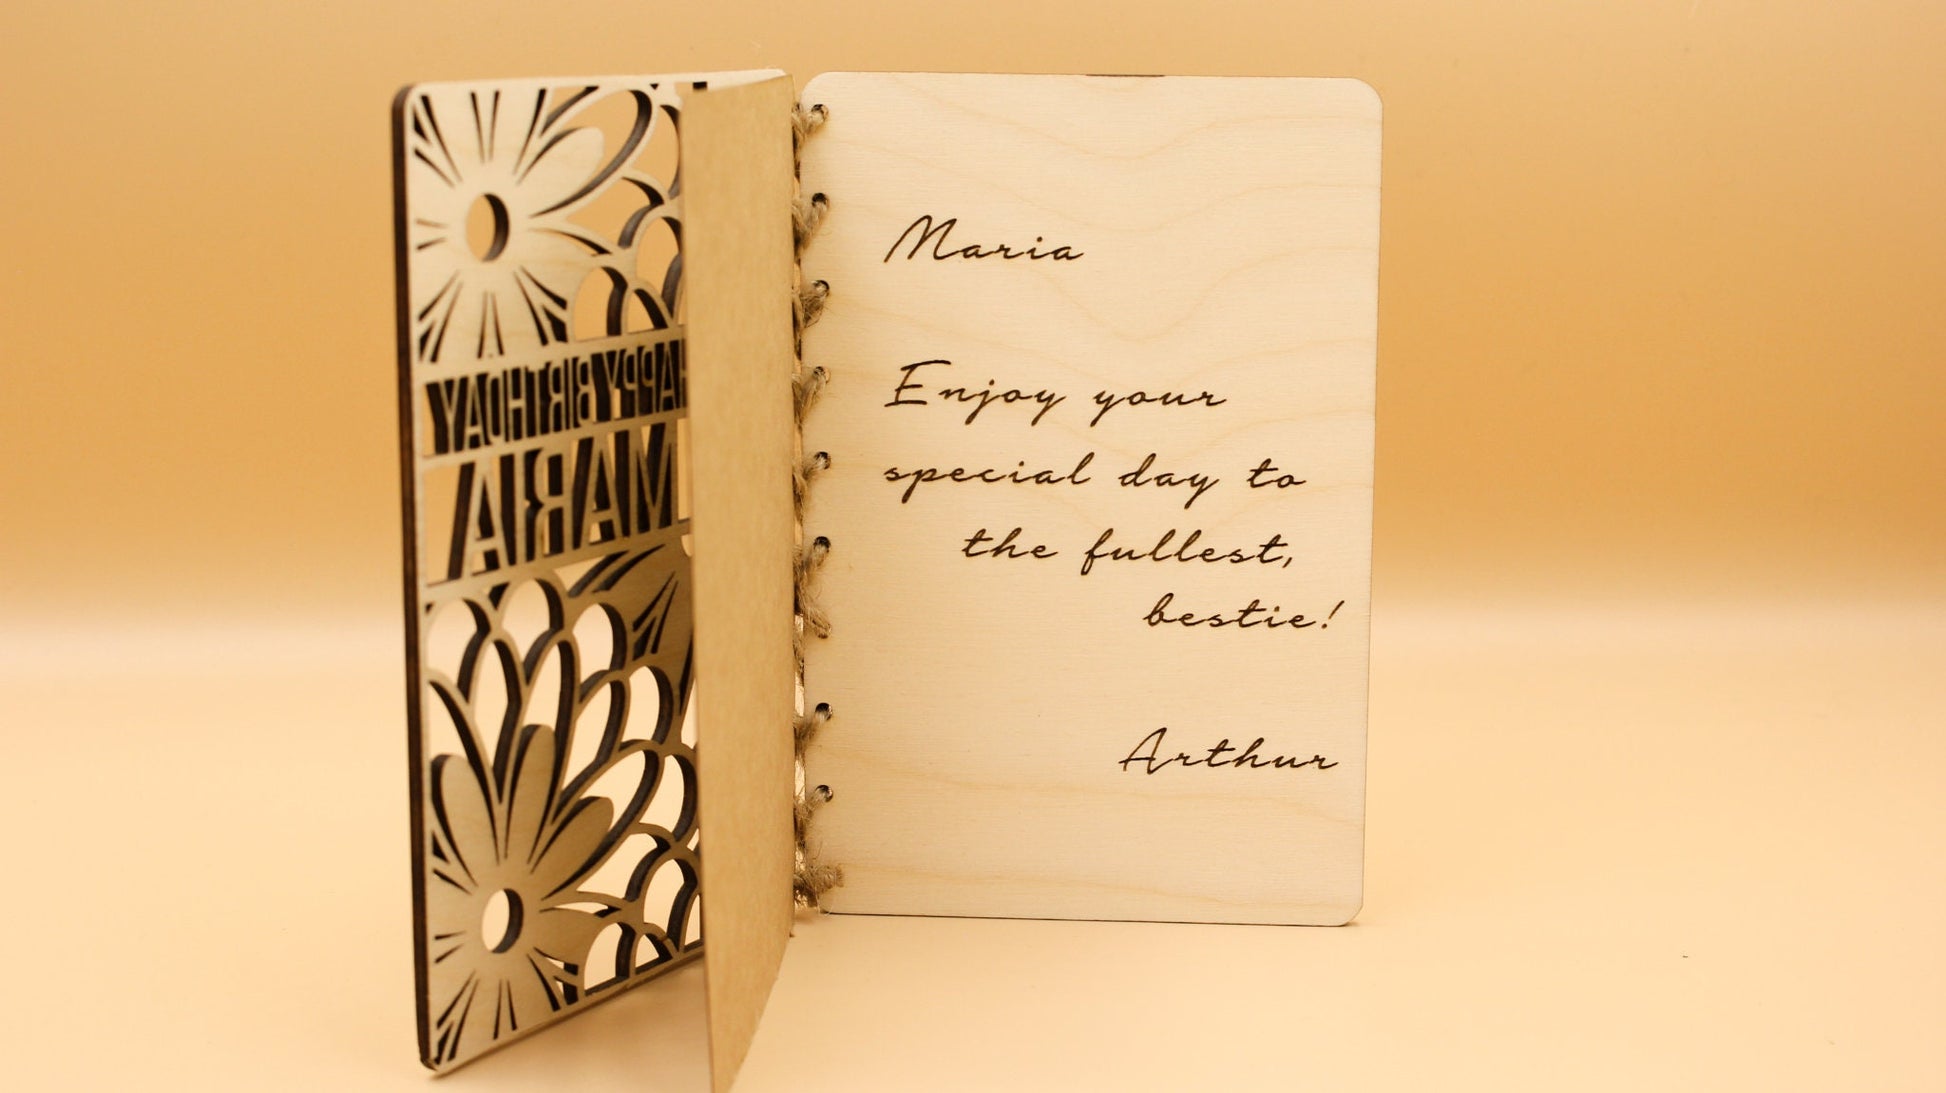 HAPPY BIRTHDAY
MARIA
Maria
Enjoy your
special day to
the fullest,
bestie!
Arthur